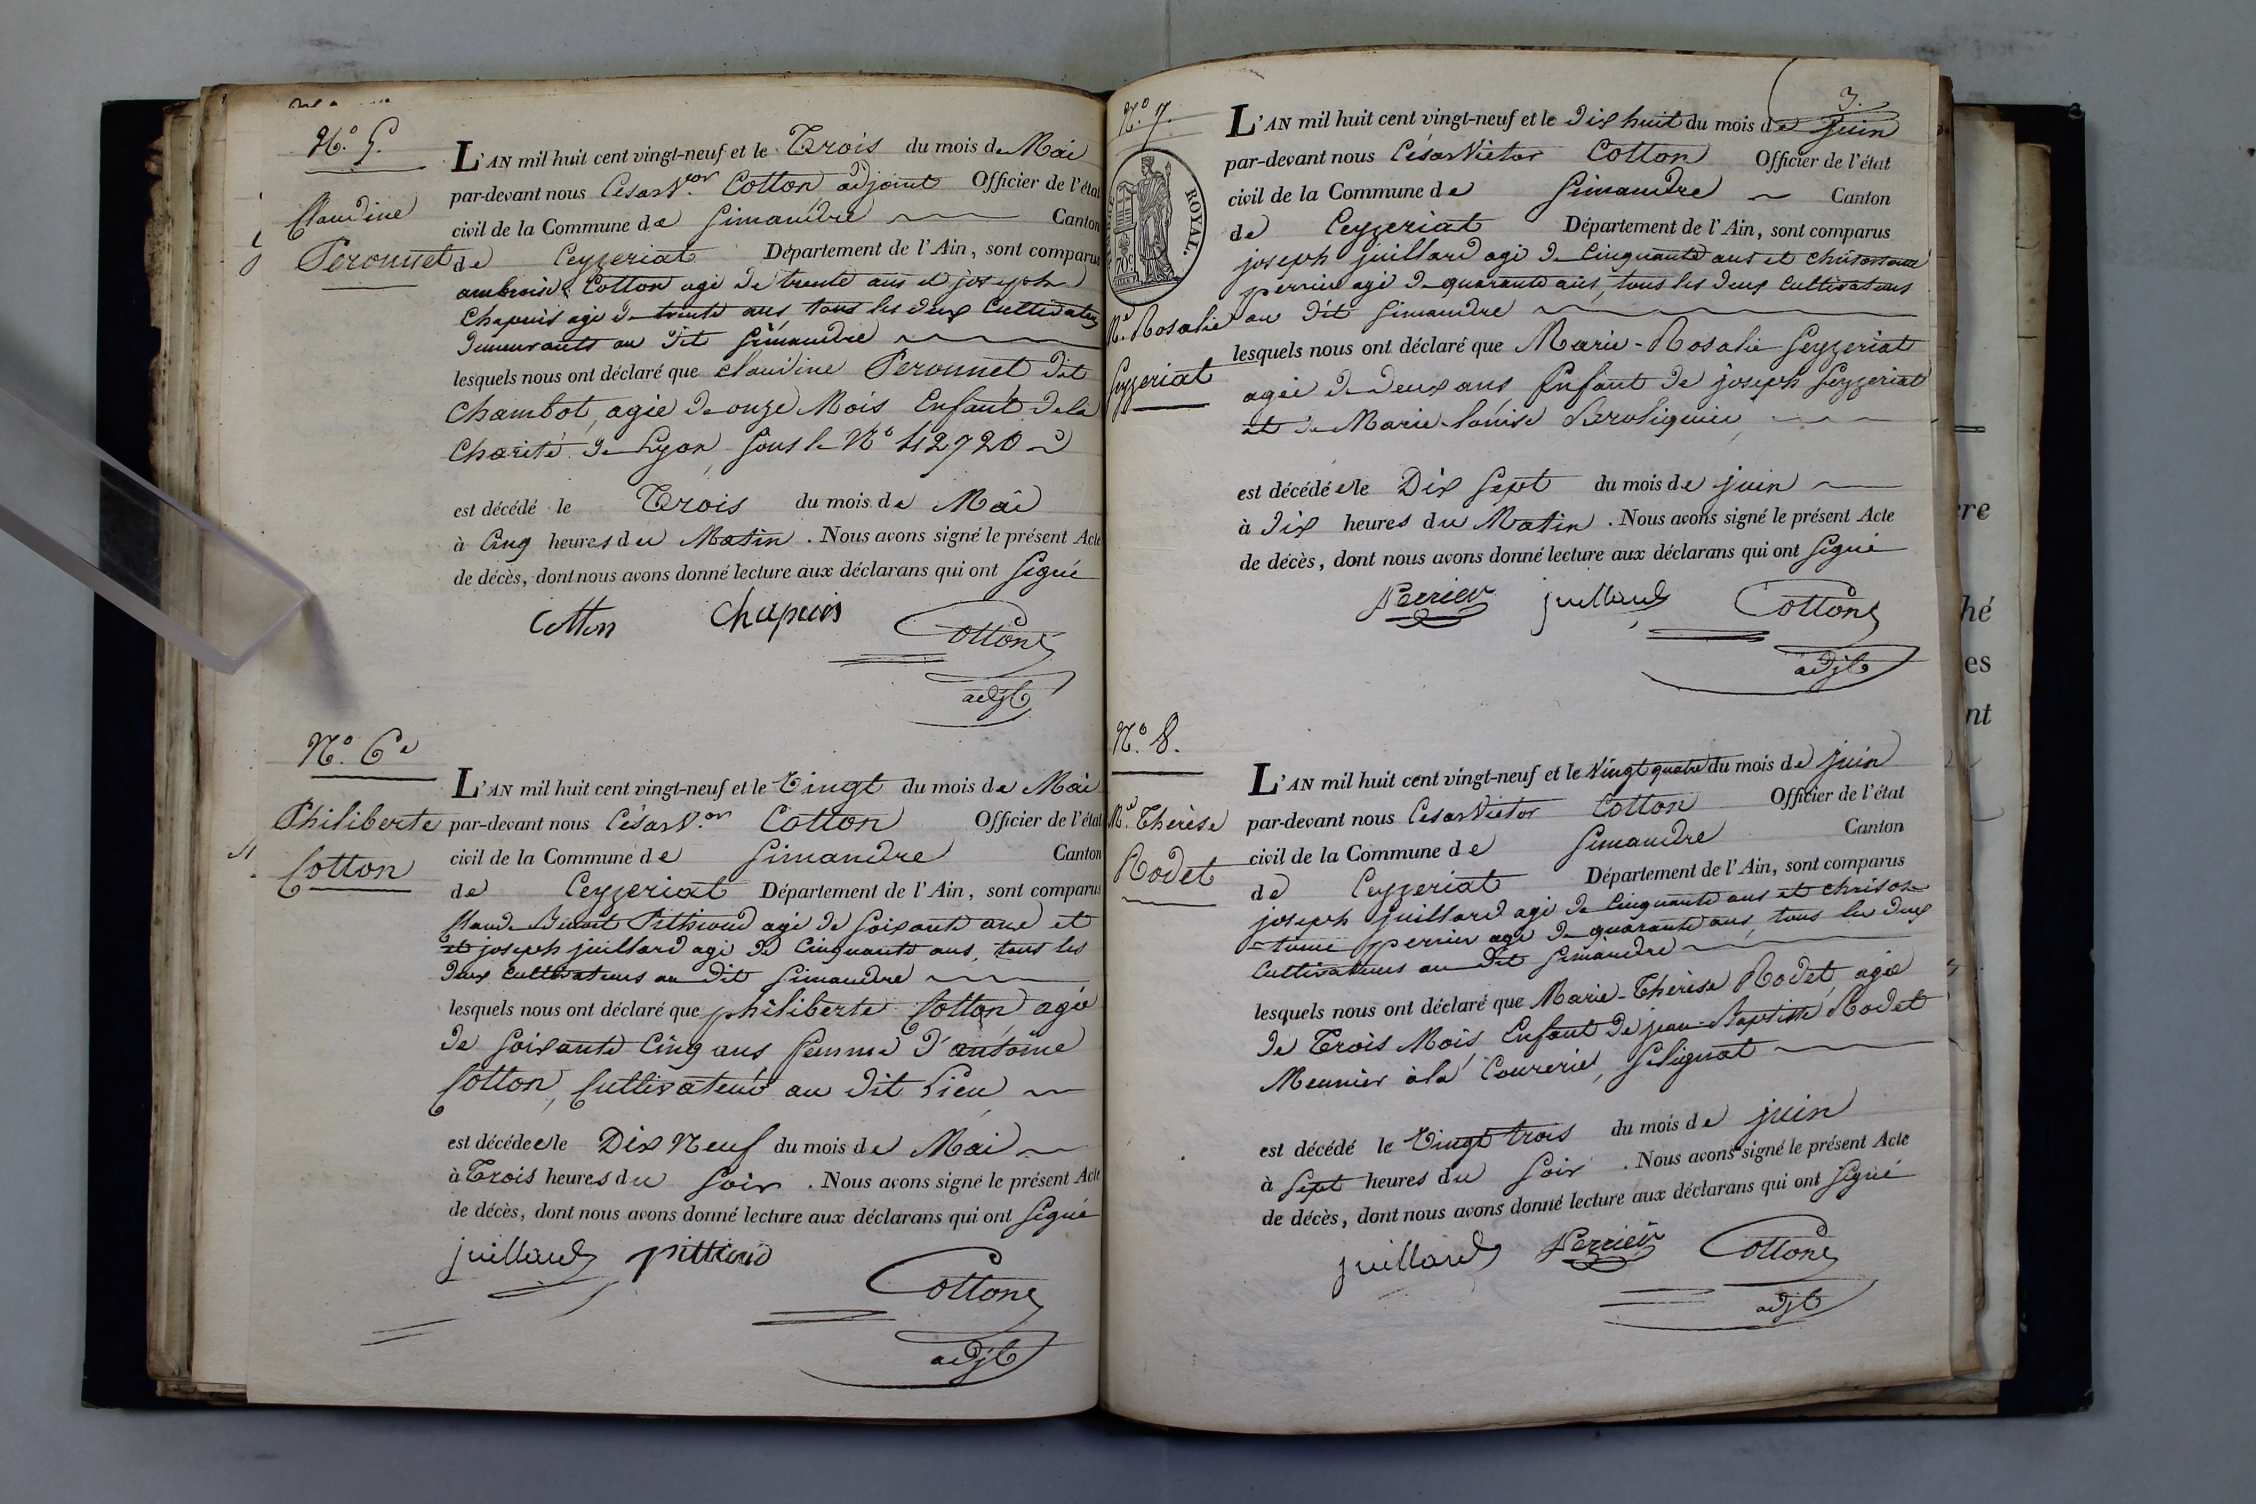 N.° 5.
Claudine
Peronnet
L'AN mil huit cent vingt-neuf et le Trois du mois de Mai
par-devant nous César V.or Cotton adjoint Officier de l'état
civil de la Commune de Simandre Canton
de Ceyzeriat Département de l'Ain, sont comparus
ambroise Cotton agé de trente ans et joseph
Chapuis agé de trente ans tous les deux Cultivateurs
demeurants au dit Simandre
lesquels nous ont déclaré que Claudine Peronnet dit
Chambot, agée de onze Mois Enfant de la
Charité de Lyon sous le N° 112720
est décédé le Trois du mois de Mai
à Cinq heures du Matin. Nous avons signé le présent Acte
de décès, dont nous avons donné lecture aux déclarans qui ont Signé
Cotton Chapuis Cotton
adjt
N.° 6e
Philiberte
Cotton
L'AN mil huit cent vingt-neuf et le Vingt du mois de Mai
par-devant nous César V.or Cotton Officier de l'état
civil de la Commune de Simandre Canton
de Ceyzeriat Département de l'Ain, sont comparus
Claude Benoit Pithioud agé de soixante ans et
et joseph juillard agé de Cinquante ans, tous les
deux Cultivateurs au dit Simandre
lesquels nous ont déclaré que philiberte Cotton agé
de soixante Cinq ans femme d'antoine
Cotton, Cultivateur au dit Lieu
est décédée le Dix Neuf du mois de Mai
à Trois heures du Soir. Nous avons signé le présent Acte
de décès, dont nous avons donné lecture aux déclarans qui ont Signé
juillard pithioud
Cotton
adjt
3.
N.° 7.
ROYAL.
70c
M.e Rosalie
Seyzeriat
L'AN mil huit cent vingt-neuf et le dix huit du mois de Juin
par-devant nous César Victor Cotton Officier de l'état
civil de la Commune de Simandre Canton
de Ceyzeriat Département de l'Ain, sont comparus
joseph juillard agé de Cinquante ans et
perrier agé de quarante ans, tous les deux Cultivateurs
au dit Simandre
lesquels nous ont déclaré que Marie-Rosalie Seyzeriat
agée de deux ans Enfant de joseph Seyzeriat
et de Marie-louise
est décédée le Dix Sept du mois de juin
à dix heures du Matin. Nous avons signé le présent Acte
de décès, dont nous avons donné lecture aux déclarans qui ont Signé
Perrier juillard Cotton
adjt
N.° 8.
M.e Thérèse
Rodet
L'AN mil huit cent vingt-neuf et le Vingt quatre du mois de juin
par-devant nous César Victor Cotton Officier de l'état
civil de la Commune de Simandre Canton
de Ceyzeriat Département de l'Ain, sont comparus
joseph juillard agé de Cinquante ans et Chrisos-
-tome perrier agé de quarante ans, tous les deux
Cultivateurs au dit Simandre
lesquels nous ont déclaré que Marie-Thérèse Rodet, agée
de Trois Mois Enfant de jean-Baptiste Rodet
Meunier à la Courerie, Sélignat
est décédé le Vingt trois du mois de juin
à Sept heures du Soir. Nous avons signé le présent Acte
de décès, dont nous avons donné lecture aux déclarans qui ont Signé
juillard Perrier Cotton
adjt